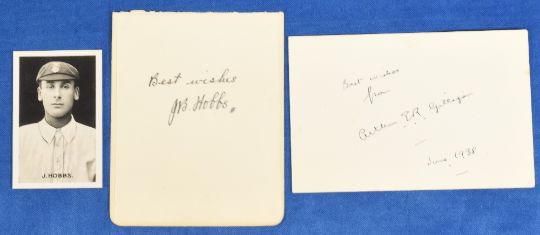 J. HOBBS.
Best wishes
JB Hobbs.
Best wishes
from
Arthur E R Gilligan
June 1938